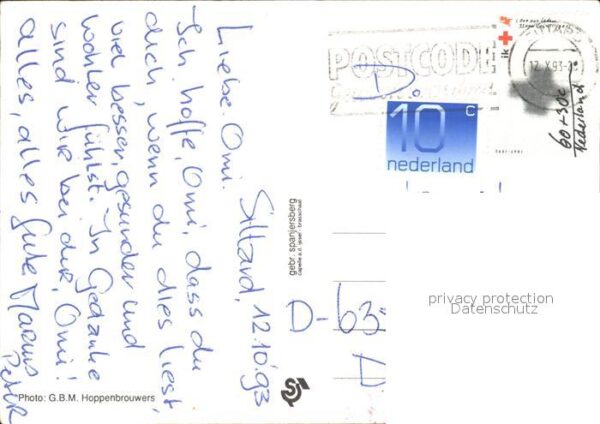 Sittard, 12.10.93
Liebe Omi.
Ich hoffe, Omi, dass du
dich, wenn du dies liest,
viel besser, gesunder und
wohler fühlst. In Gedanke
sind wir bei dir, Omi!
alles, alles Gute Marcus
Peter
Photo: G.B.M. Hoppenbrouwers
gebr. spanjersberg
capelle a.d. ijssel - brasschaat
POSTCODE
12.X.93-2
ik
60+30c
Nederland
D.
10 c
nederland
D-63
A
privacy protection
Datenschutz